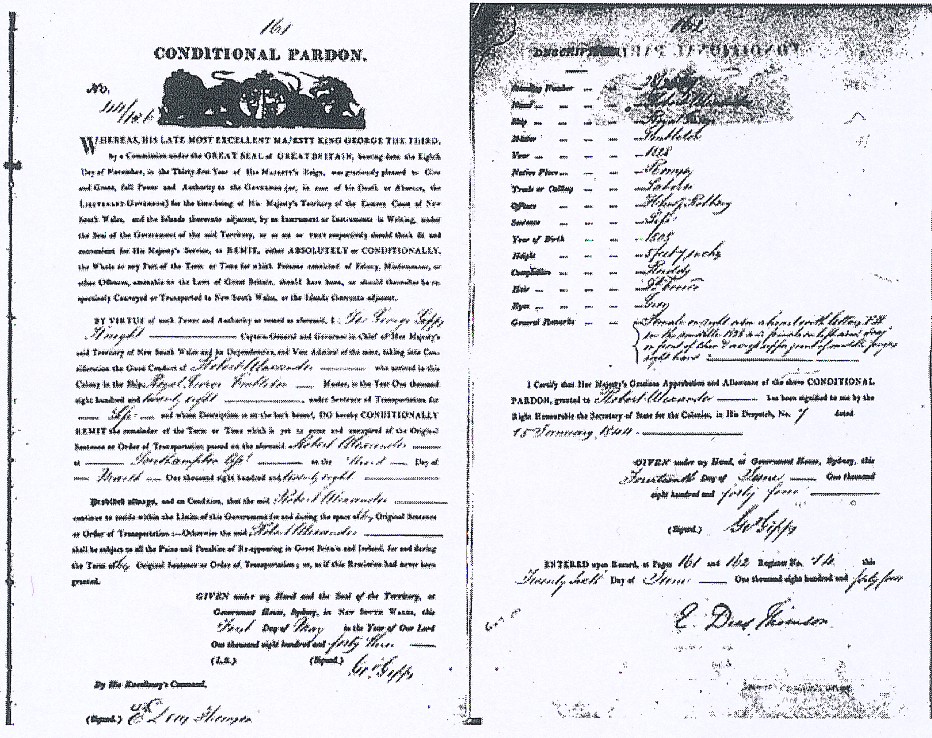 161
CONDITIONAL PARDON.
No.
44/126
WHEREAS, HIS LATE MOST EXCELLENT MAJESTY KING GEORGE THE THIRD,
by a Commission under the GREAT SEAL of GREAT BRITAIN, bearing date the Eighth
Day of November, in the Thirty-first Year of His Majesty's Reign, was graciously pleased to Give
and Grant, full Power and Authority to the Governor (or, in case of his Death or Absence, the
Lieutenant-Governor) for the time being of His Majesty's Territory of the Eastern Coast of New
South Wales, and the Islands thereunto adjacent, by an Instrument or Instruments in Writing, under
the Seal of the Government of the said Territory, or as he or they respectively should think fit and
convenient for His Majesty's Service, to REMIT, either ABSOLUTELY or CONDITIONALLY,
the Whole or any Part of the Term or Time for which Persons convicted of Felony, Misdemeanor, or
other Offences, amenable to the Laws of Great Britain, should have been, or should thereafter be re-
spectively Conveyed or Transported to New South Wales, or the Islands thereunto adjacent.
BY VIRTUE of such Power and Authority so vested as aforesaid, I, Sir George Gipps
Knight Captain-General and Governor in Chief of Her Majesty's
said Territory of New South Wales and its Dependencies, and Vice Admiral of the same, taking into Con-
sideration the Good Conduct of Robert Alexander who arrived in this
Colony in the Ship Royal George Embleton Master, in the Year One thousand
eight hundred and twenty eight under Sentence of Transportation for
Life and whose Description is on the back hereof, DO hereby CONDITIONALLY
REMIT the remainder of the Term or Time which is yet to come and unexpired of the Original
Sentence or Order of Transportation passed on the aforesaid Robert Alexander
at Southampton on the Third Day of
March One thousand eight hundred and twenty eight
Provided always, and on Condition, that the said Robert Alexander
continue to reside within the Limits of this Government for and during the space of his Original Sentence
or Order of Transportation:—Otherwise the said Robert Alexander
shall be subject to all the Pains and Penalties of Re-appearing in Great Britain and Ireland, for and during
the Term of his Original Sentence or Order of Transportation; or, as if this Remission had never been
granted.
GIVEN under my Hand and the Seal of the Territory, at
Government House, Sydney, in New South Wales, this
First Day of May in the Year of Our Lord
One thousand eight hundred and forty three
(L.S.) (Signed.) Geo Gipps
By His Excellency's Command,
(Signed.) E Deas Thomson
161
DESCRIPTION
Standing Number
Name Robert Alexander
Ship Royal George
Master Embleton
Year 1828
Native Place Romsey
Trade or Calling Laborer
Offence Highway Robbery
Sentence Life
Year of Birth
Height 5 feet 7 inches
Complexion Ruddy
Hair Brown
Eyes Grey
General Remarks
I Certify that Her Majesty's Gracious Approbation and Allowance of the above CONDITIONAL
PARDON, granted to Robert Alexander has been signified to me by the
Right Honourable the Secretary of State for the Colonies, in His Despatch, No. 7 dated
15 January 1844
GIVEN under my Hand, at Government House, Sydney, this
Fourteenth Day of June One thousand
eight hundred and forty four
(Signed.) Geo Gipps
ENTERED upon Record, at Pages 161 and 162 Register No. 14 this
Twenty sixth Day of June One thousand eight hundred and forty four
E. Deas Thomson